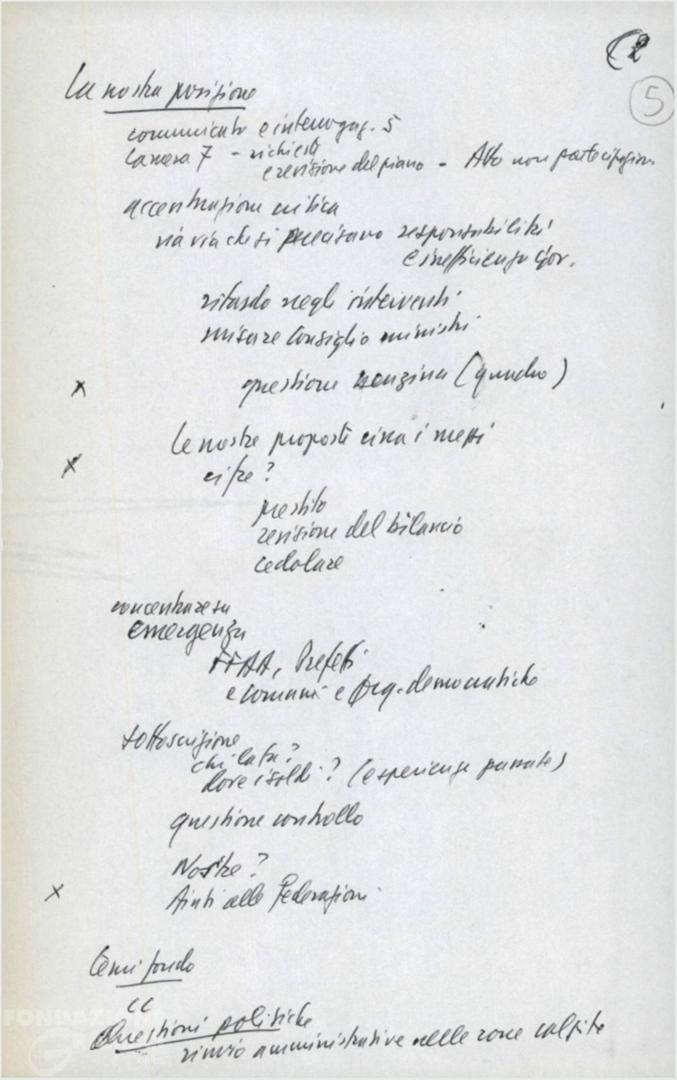 (2
5
La nostra posizione
comunicato e interrogaz. 5
Camera 7 - richiesti
e revisione del piano - Alto non partecipazione
accentuazione critica
via via che si precisano responsabilità
e inefficienza Gov.
ritardo negli interventi
misure Consiglio ministri
x questione benzina (quadro)
Le nostre proposte circa i mezzi
x cifre?
prestito
revisione del bilancio
cedolare
concentrare su
emergenza
FFAA, Prefetti
e comuni e Org. democratiche
sottoscrizione
chi la fa?
dove i soldi? (esperienze passate)
questione controllo
Nostre?
x Aiuti alle Federazioni
Temi fondo
CC
Questioni politiche
rinvio amministrative nelle zone colpite
FONDAZIONE